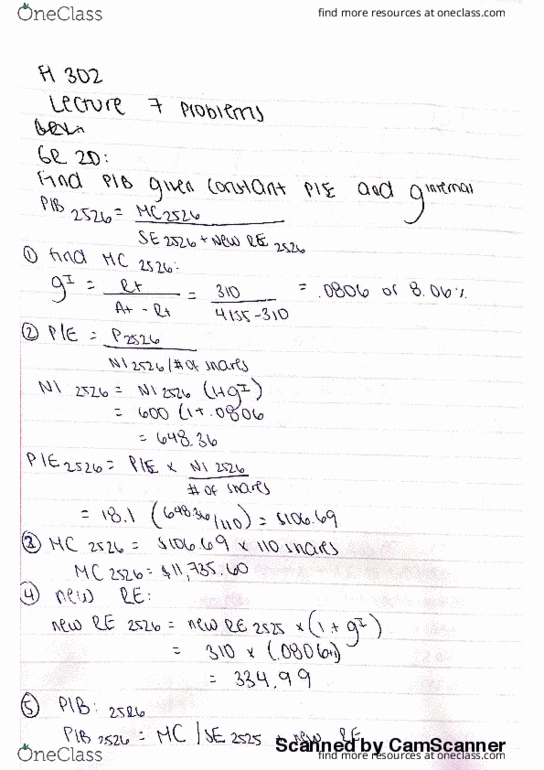 OneClass
find more resources at oneclass.com
FI 302
Lecture 7 Problems
GR 2D:
Find P/B given constant P/E and g internal
P/B 2526 = MC 2526
SE 2526 + New RE 2526
① find MC 2526:
g^I = Rt / At - Rt = 310 / 4155-310 = .0806 or 8.06%
② P/E = P2526
NI 2526 / # of shares
NI 2526 = NI 2526 (1+g^I)
= 600 (1+.0806
= 648.36
P/E 2526 = P/E × NI 2526
# of shares
= 18.1 (648.36/110) = $106.69
③ MC 2526 = $106.69 × 110 shares
MC 2526 = $11,735.60
④ new RE:
new RE 2526 = new RE 2525 × (1 + g^I)
= 310 × (.0806+1)
= 334.99
⑤ P/B: 2526
P/B 2526 = MC / SE 2525 + new RE
Scanned by CamScanner
OneClass
find more resources at oneclass.com